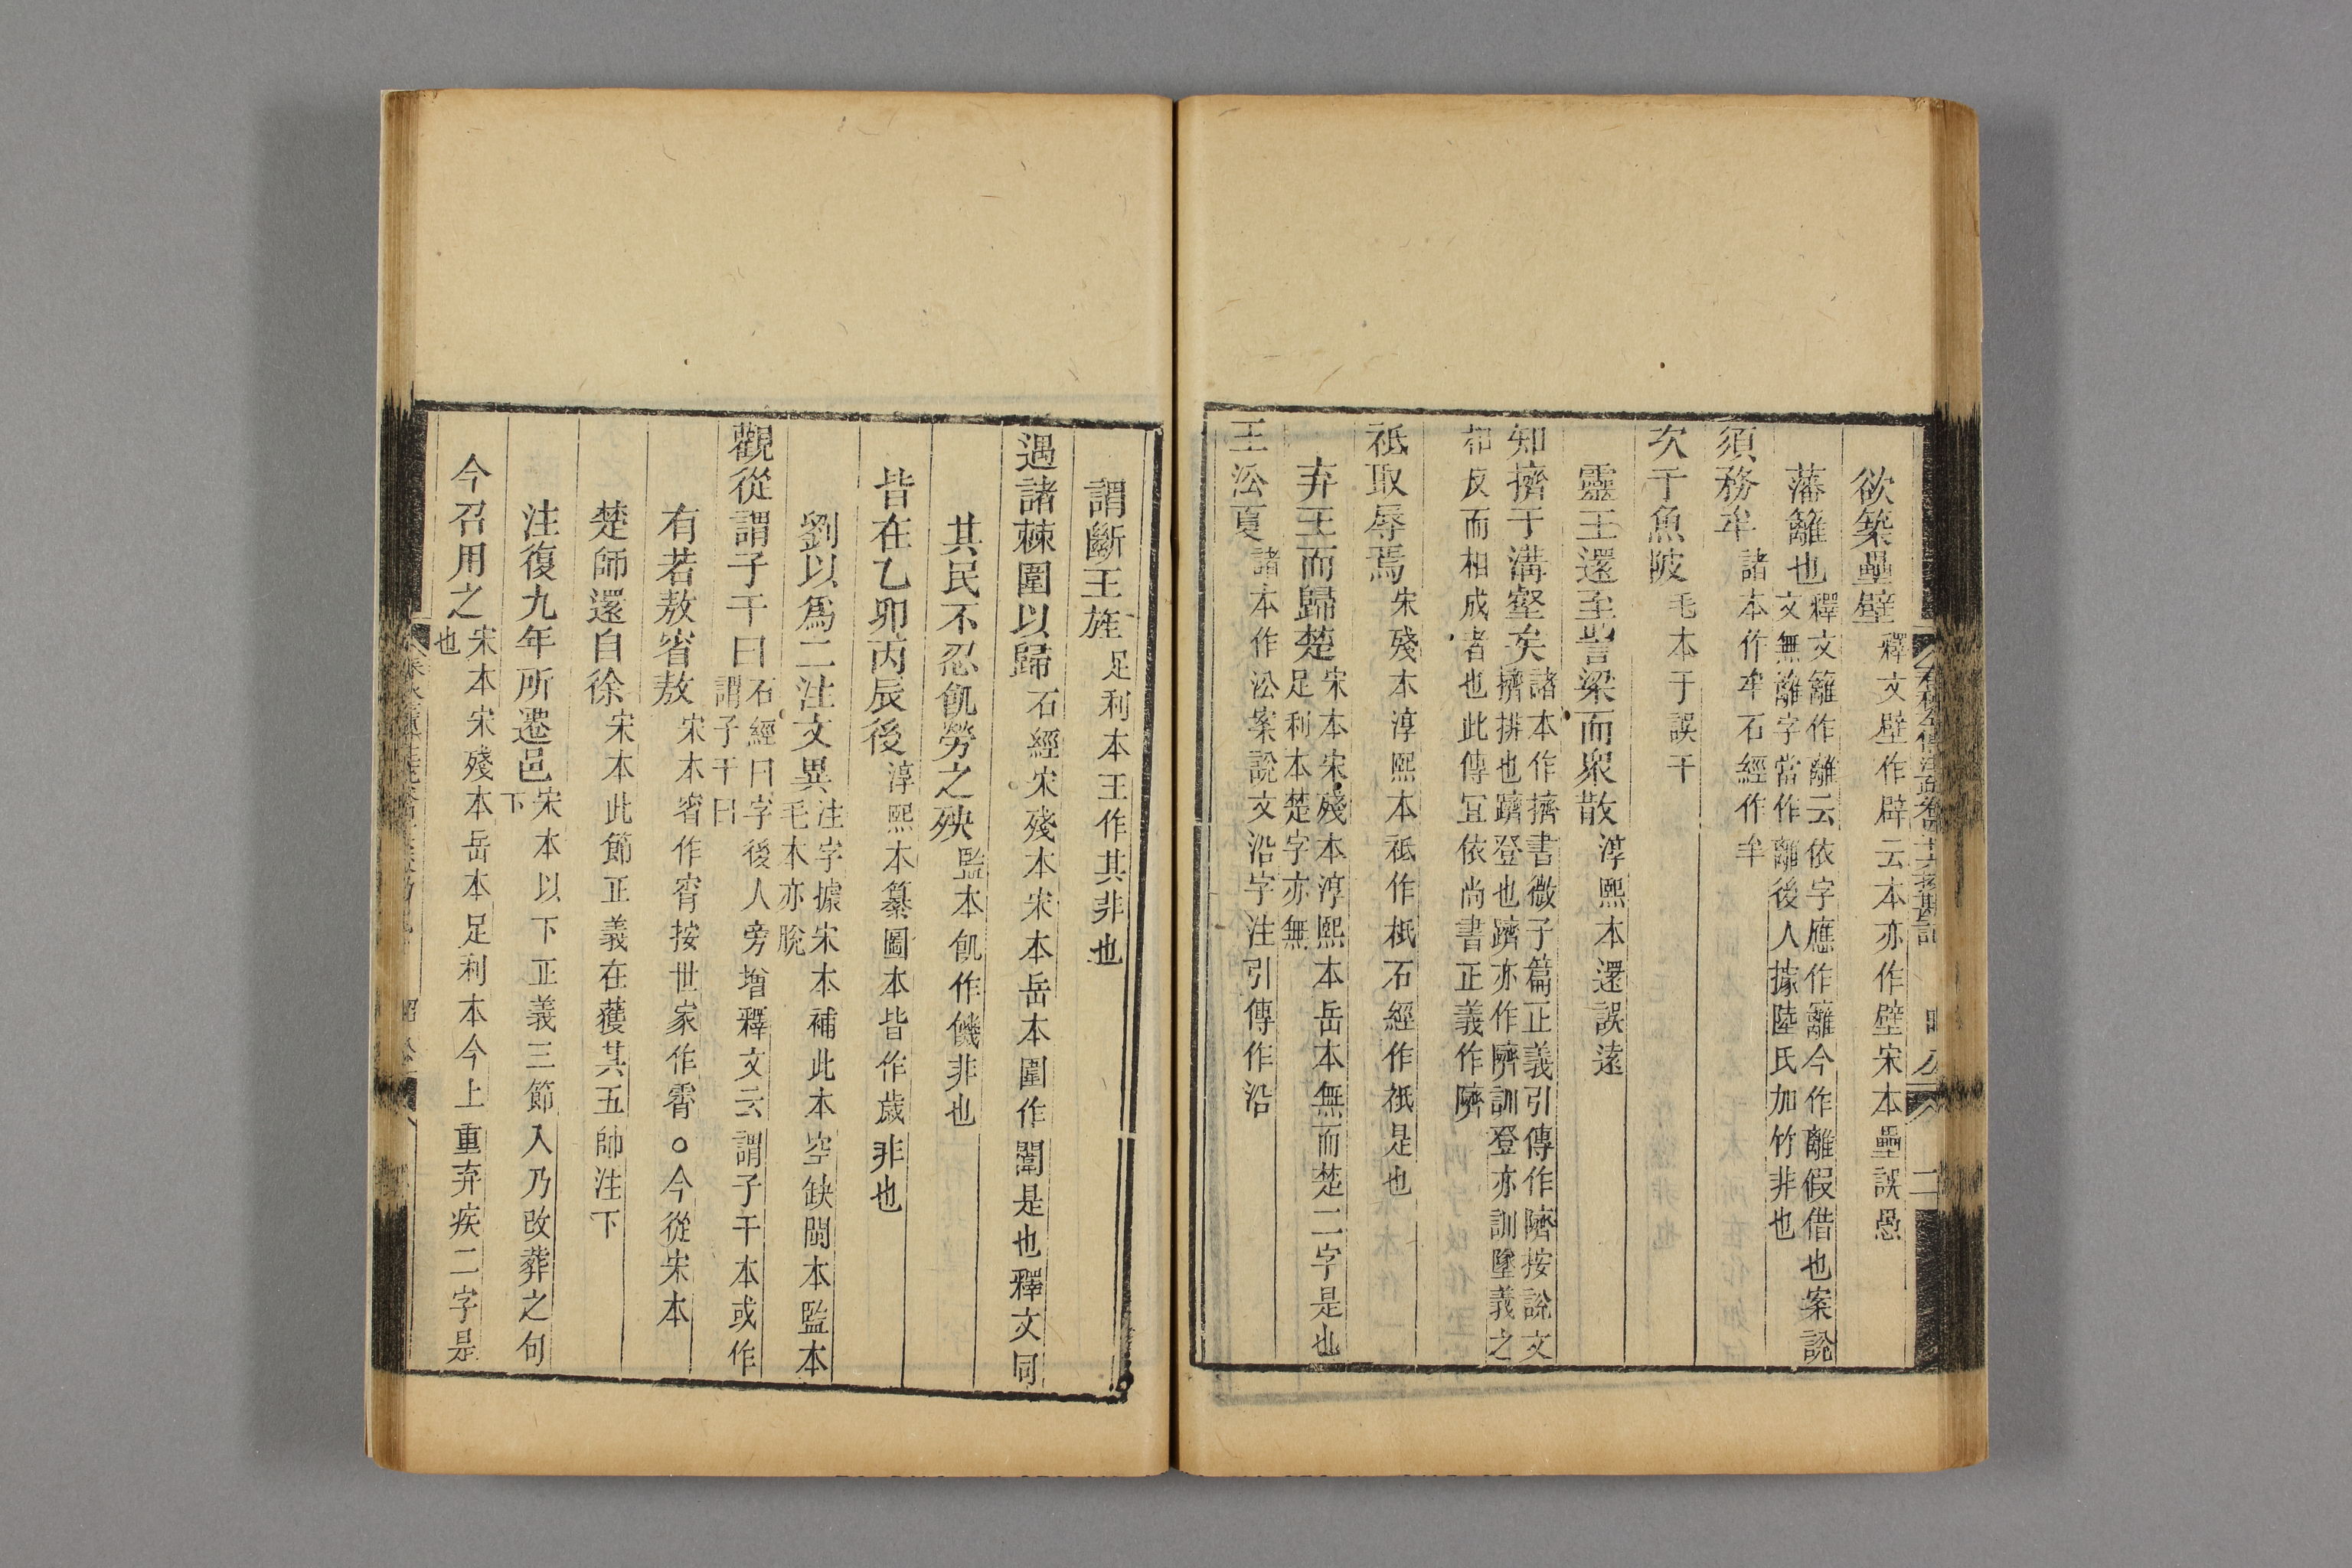 欲築壘壁釋文壁作辟云本亦作壁宋本壘誤壘
藩籬也釋文籬作離云依字應作籬今作離假借也案說
文無籬字當作離後人據陸氏加竹非也
須務牟諸本作牟石經作牟
次于魚陂毛本于誤干
靈王還至訾梁而眾散淳熙本還誤遠
知擠于溝壑矣諸本作擠書微子篇正義引傳作隮按說文
擠排也躋登也躋亦作隮訓登亦訓墜義之
相反而相成者也此傳宜依尚書正義作隮
祗取辱焉宋殘本淳熙本祗作秖石經作祇是也
弃王而歸楚宋本宋殘本淳熙本岳本無而楚二字是也
足利本楚字亦無
王㳂夏諸本作㳂案說文沿字注引傳作沿
謂斷王旌足利本王作其非也
遇諸棘圍以歸石經宋殘本宋本岳本圍作闈是也釋文同
其民不忍飢勞之殃監本飢作饑非也
皆在乙卯丙辰後淳熙本纂圖本皆作歲非也
劉以爲二注文異注字據宋本補此本空缺閩本監本
毛本亦脫
觀從謂子干曰石經曰字後人旁增釋文云謂子干本或作
謂子干曰
有若敖省敖宋本省作宵按世家作霄○今從宋本
楚師還自徐宋本此節正義在獲其五帥注下
注復九年所遷邑宋本以下正義三節入乃改葬之句
下
今召用之宋本宋殘本岳本足利本今上重弃疾二字是
也